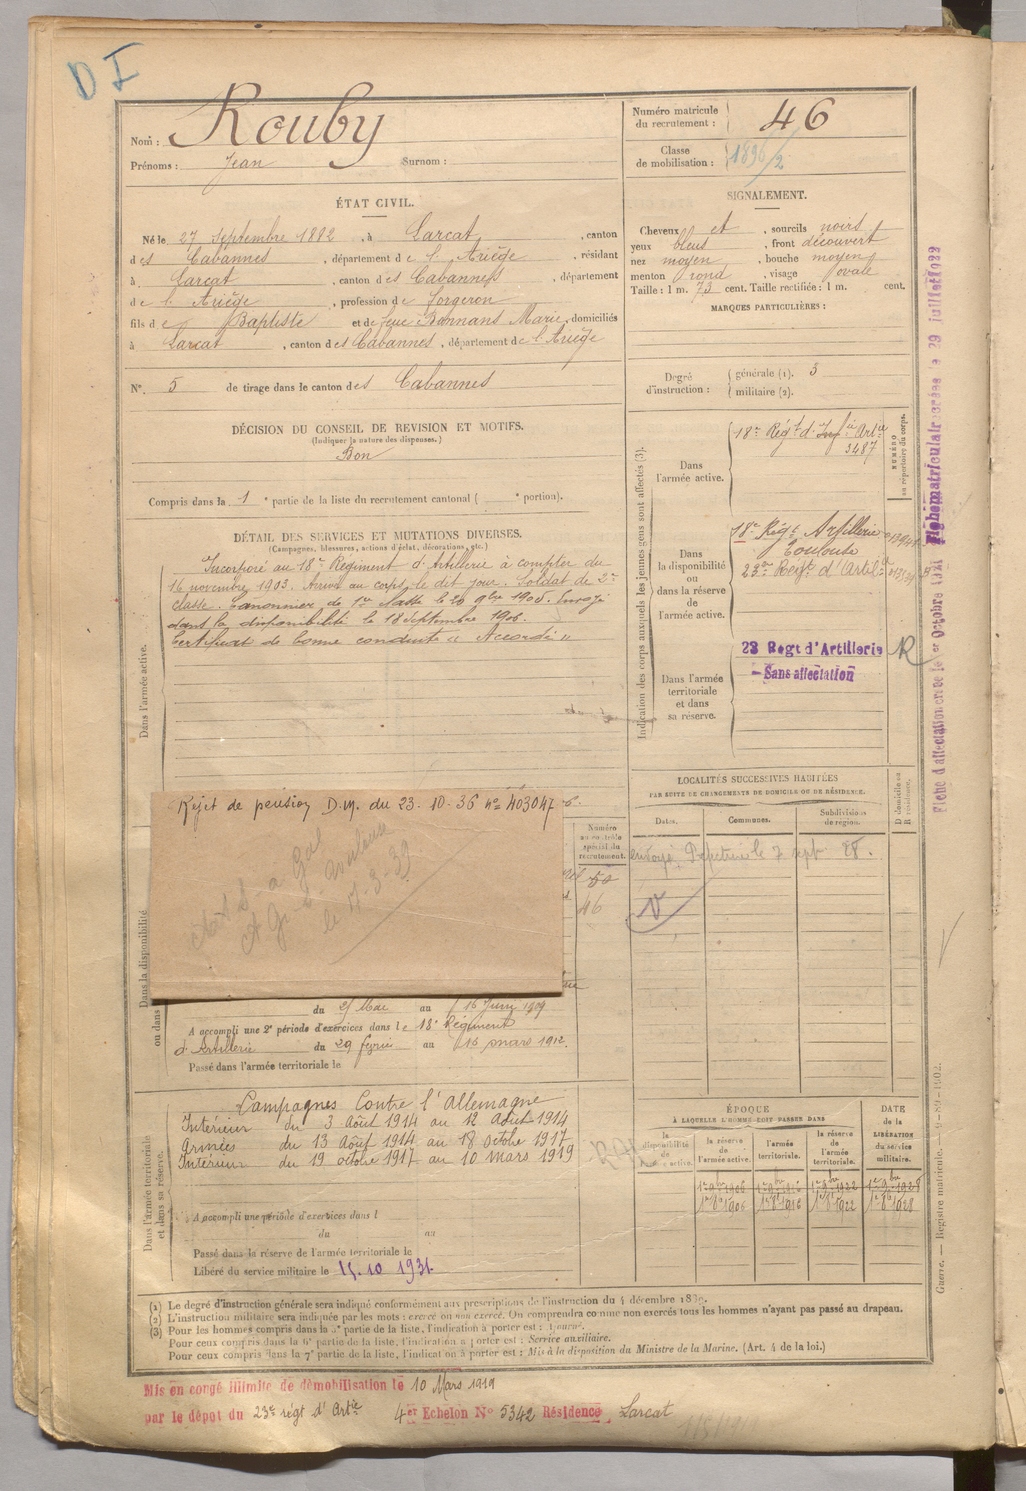 D I
Nom : Rouby
Prénoms : Jean Surnom :
Numéro matricule
du recrutement : 46
Classe
de mobilisation : 1896/2
ÉTAT CIVIL.
Né le 27 septembre 1882, à Larcat, canton
des Cabannes, département de l'Ariège, résidant
à Larcat, canton des Cabannes, département
de l'Ariège, profession de forgeron
fils de Baptiste et de feue Bonnans Marie, domiciliés
à Larcat, canton des Cabannes, département de l'Ariège
N° 5 de tirage dans le canton des Cabannes
SIGNALEMENT.
Cheveux et, sourcils noirs
yeux bleus, front découvert
nez moyen, bouche moyenne
menton rond, visage ovale
Taille : 1 m. 73 cent. Taille rectifiée : 1 m. cent.
MARQUES PARTICULIÈRES :
Degré
d'instruction :
générale (1). 3
militaire (2).
DÉCISION DU CONSEIL DE REVISION ET MOTIFS.
(Indiquer la nature des dispenses.)
Bon
Compris dans la 1e partie de la liste du recrutement cantonal ( e portion).
DÉTAIL DES SERVICES ET MUTATIONS DIVERSES.
(Campagnes, blessures, actions d'éclat, décorations, etc.)
Dans l'armée active.
Incorporé au 18e Régiment d'Artillerie à compter du
16 novembre 1903. Arrivé au corps le dit jour. Soldat de 2e
classe. Canonnier de 1re classe le 20 9bre 1905. Envoyé
dans la disponibilité le 18 septembre 1906.
Certificat de bonne conduite "Accordé"
Indication des corps auxquels les jeunes gens sont affectés (3).
Dans
l'armée active.
18e Régt d'
3487
NUMÉRO
au répertoire du corps.
Dans
la disponibilité
ou dans la réserve
de
l'armée active.
18e Régt Artillerie
Toulouse
23e Regt d'Artil
Dans l'armée
territoriale
et dans
sa réserve.
23 Regt d'Artillerie
Sans affectation
R
LOCALITÉS SUCCESSIVES HABITÉES
PAR SUITE DE CHANGEMENTS DE DOMICILE OU DE RÉSIDENCE.
Dates. Communes. Subdivisions de région. D domicile ou R résidence.
le 7 sept 28.
Rejet de pension D.M. du 23-10-36 n° 403047
Numéro
au contrôle
spécial du
recrutement.
50
46
Dans la disponibilité
ou dans
du 25 Mai au 16 Juin 1909
A accompli une 2e période d'exercices dans le 18e Régiment
d'Artillerie du 29 février au 16 mars 1912.
Passé dans l'armée territoriale le
Dans l'armée territoriale
et dans sa réserve.
Campagnes Contre l'allemagne
Intérieur du 3 Août 1914 au 12 Août 1914
Armées du 13 Août 1914 au 18 octobre 1917
Intérieur du 19 octobre 1917 au 10 mars 1919
A accompli une période d'exercices dans l
du au
Passé dans la réserve de l'armée territoriale le
Libéré du service militaire le 15.10 1931.
ÉPOQUE
À LAQUELLE L'HOMME DOIT PASSER DANS
la disponibilité de l'armée active. la réserve de l'armée active. l'armée territoriale. la réserve de l'armée territoriale.
DATE
de la
LIBÉRATION
du service
militaire.
1er 9bre 1906 1er 9bre 1916 1er 9bre 1922 1er 9bre 1928
1er 8bre 1906 1er 8bre 1916 1er 8bre 1922 1er 8bre 1928
(1) Le degré d'instruction générale sera indiqué conformément aux prescriptions de l'instruction du 4 décembre
(2) L'instruction militaire sera indiquée par les mots : exercé ou non exercé. On comprendra comme non exercés tous les hommes n'ayant pas passé au drapeau.
(3) Pour les hommes compris dans la 5e partie de la liste, l'indication à porter est : Ajourné.
Pour ceux compris dans la 6e partie de la liste, l'indication à porter est : Service auxiliaire.
Pour ceux compris dans la 7e partie de la liste, l'indication à porter est : Mis à la disposition du Ministre de la Marine. (Art. 4 de la loi.)
Mis en congé illimité de démobilisation le 10 Mars 1919
par le dépôt du 23e régt d'Artie 4er Echelon N° 5342 Résidence Larcat
Fiche d'affectation créée le 1er Octobre 1921 Fiche matriculaire créée le 29 juillet 1922
Guerre. — Registre matricule.